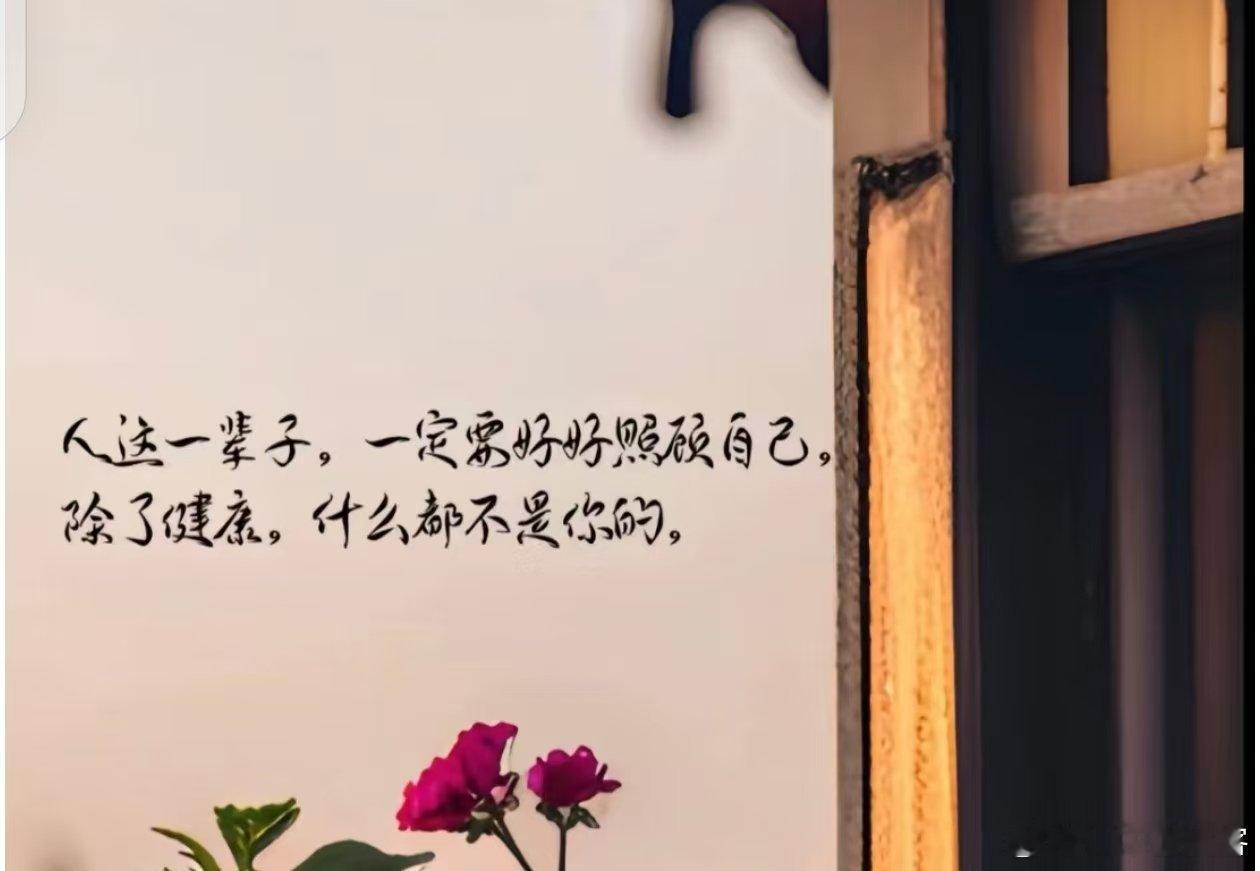 人这一辈子，一定要好好照顾自己，
除了健康。什么都不是你的，